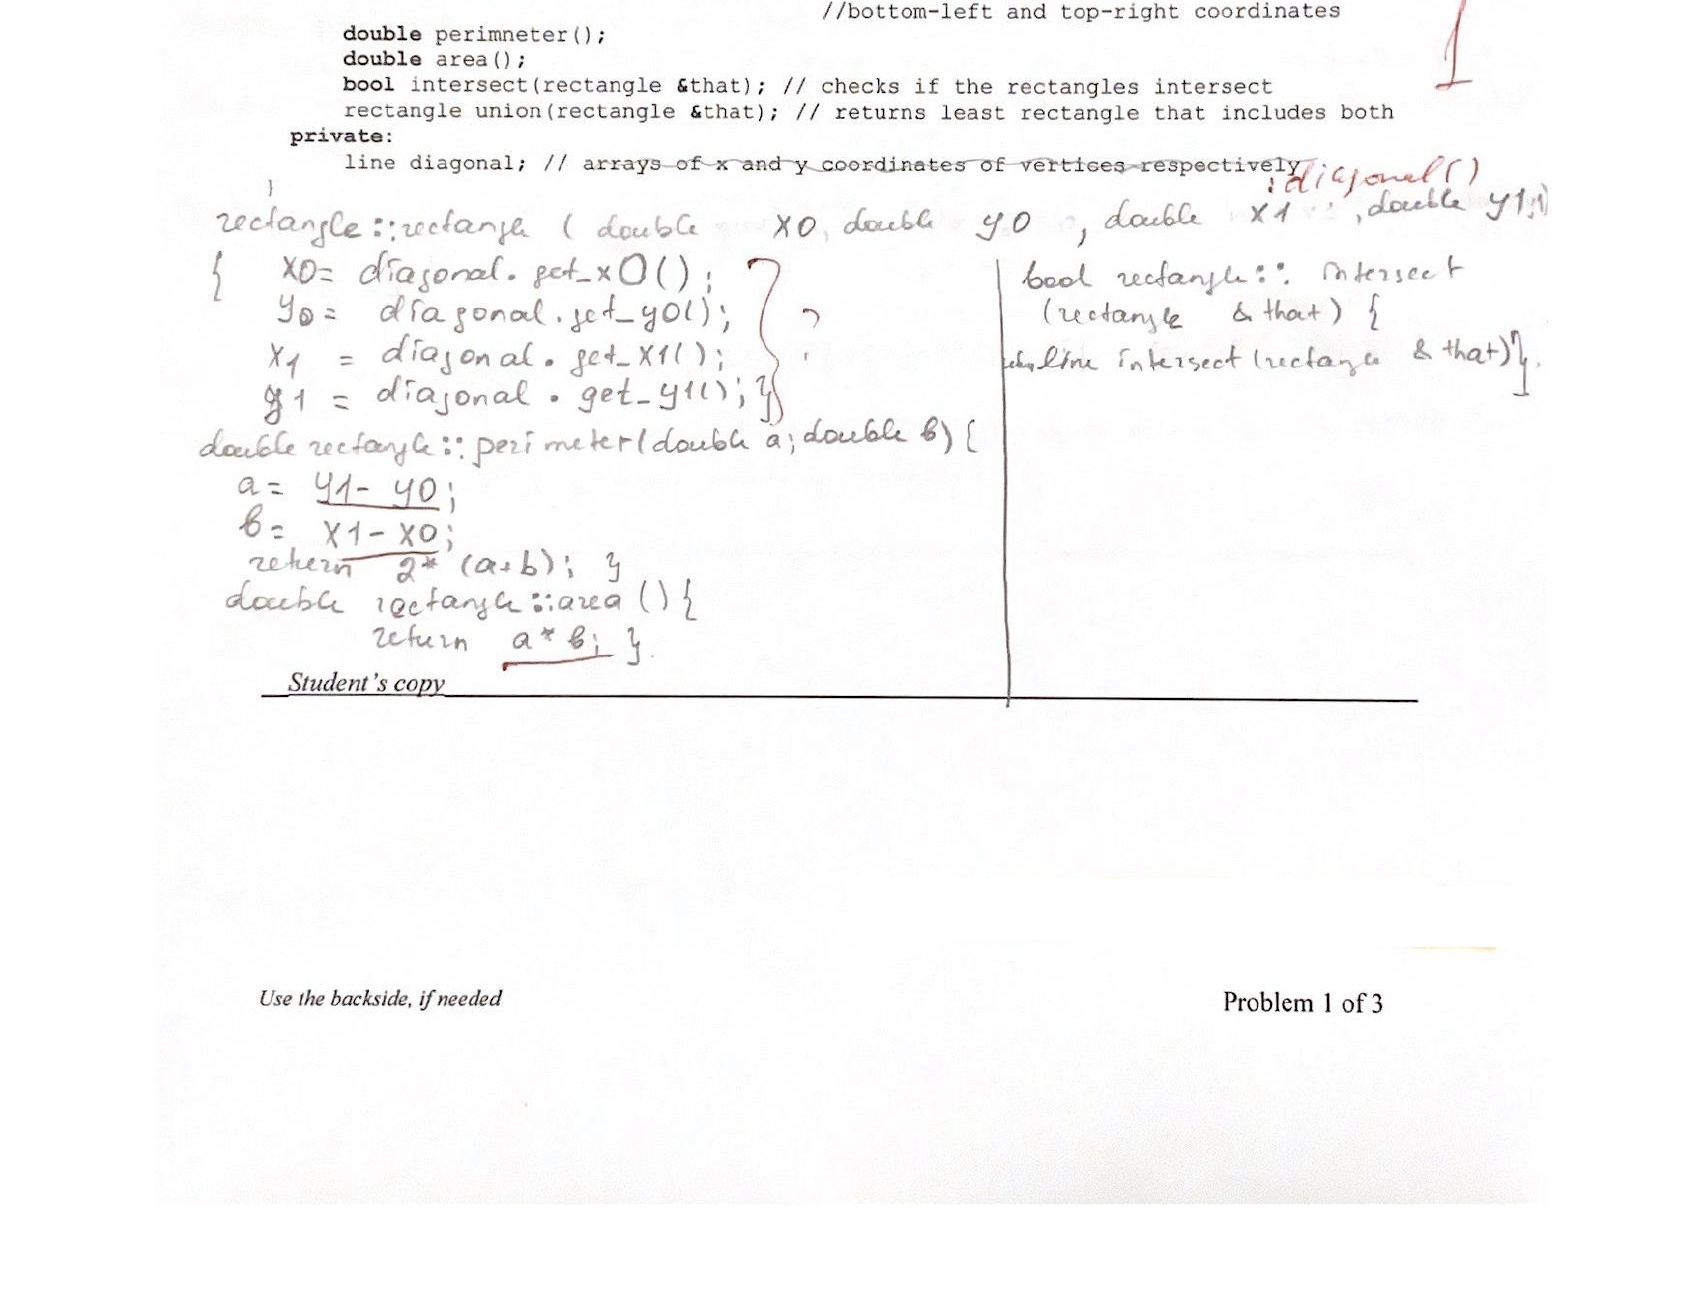 //bottom-left and top-right coordinates
1
double perimneter();
double area();
bool intersect(rectangle &that); // checks if the rectangles intersect
rectangle union(rectangle &that); // returns least rectangle that includes both
private:
line diagonal; // arrays of x and y coordinates of vertices respectively
}
: diagonal()
rectangle::rectangle ( double x0, double y0 , double x1 , double y1)
{ x0= diagonal.get_x0();
y0= diagonal.get_y0();
x1 = diagonal.get_x1();
y1 = diagonal.get_y1(); }
?
double rectangle::perimeter(double a; double b) {
a= y1- y0;
b= x1- x0;
return 2* (a+b); }
double rectangle::area () {
return a* b; }
bool rectangle:: intersect
(rectangle & that) {
line intersect (rectangle & that)}.
Student's copy
Use the backside, if needed
Problem 1 of 3